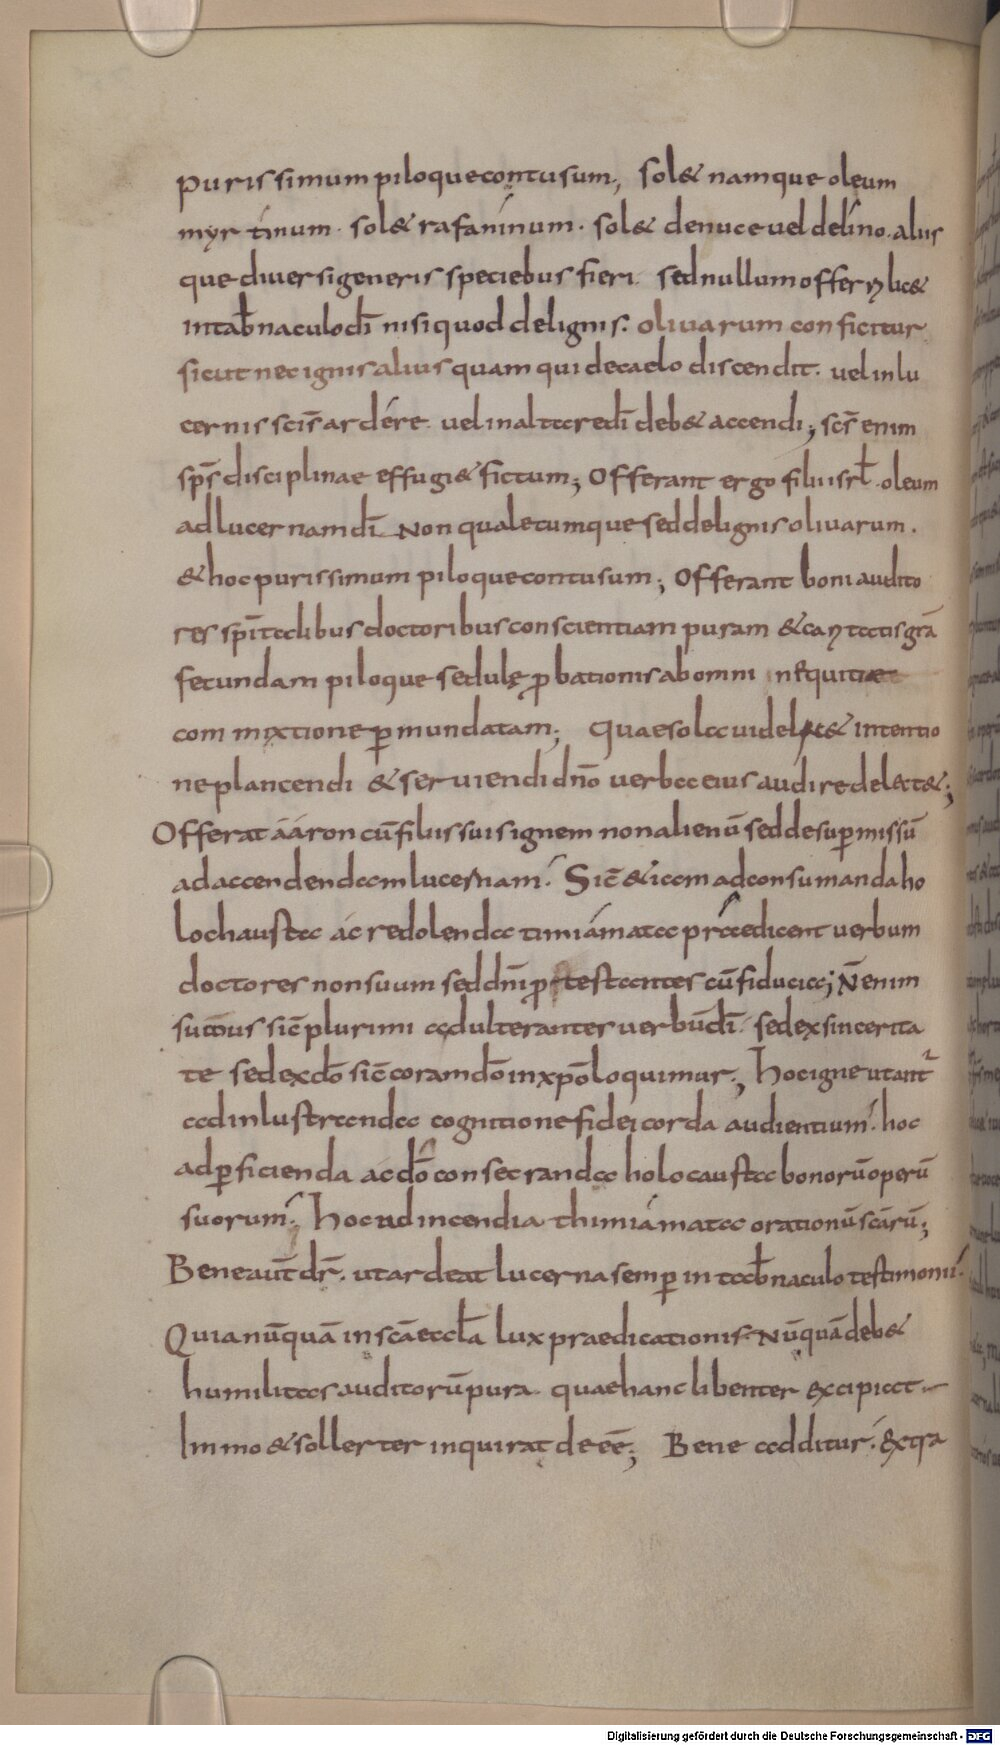 purissimum piloque contusum; sol& namque oleum
myrtinum. sol& rafaninum. sol& denuce uel delino. aliis
que diuersi generis speciebus fieri. sed nullum offerri lic&
in tab̄naculo dī nisi quod de lignis. oliuarum conficitur
sicut nec ignis alius quam qui de caelo discendit. uel in lu
cernis sc̄is ardére. uel in altare dī deb& accendi; sc̄s enim
sp̄s disciplinae effugi& fictum; Offerant ergo filii isrł. oleum
ad lucernam dī. Non qualecumque sed de lignis oliuarum.
& hoc purissimum piloque contusum; Offerant boni audito
res sp̄italibus doctoribus conscientiam puram & caritatis grā
fecundam piloque sedulę ꝓbationis ab omni nequitiae
commixtione ꝑmundatam; Quae sola uidel&  intentio
ne placendi & seruiendi dn̄o uerba eius audire delect&;
Offerat ááron cū filiis suis ignem non alienū sed desuꝑ missū
ad accendendam lucernam. Sic̄ & iam ad consumanda ho
lochausta ác redolenda timiámata praedicent uerbum
doctores non suum sed dn̄i ꝓtestantes cū fiducia; N̄ enim
sumus sic̄ plurimi adulterantes uerbū dī. sed ex sincerita
te sed ex dō sic̄ coram dō in xp̄o loquimur; Hoc igne utant᷑
ad inlustranda cognitione fidei corda audientium. hoc
ad ꝑficienda ac dō consecranda holocausta bonorū operū
suorum. Hoc ad incendia thimiámata orationū sc̄arū;
Bene aut̄ dr̄. ut ardeat lucerna semꝑ in tab̄naculo testimonii.
Quia nūquā in sc̄a eccl̄a lux praedicationis. Nūquā deb&
humilitas auditorū pura quae hanc libenter excipiat.
Immo & sollerter inquirat deeē; Bene additur. extra